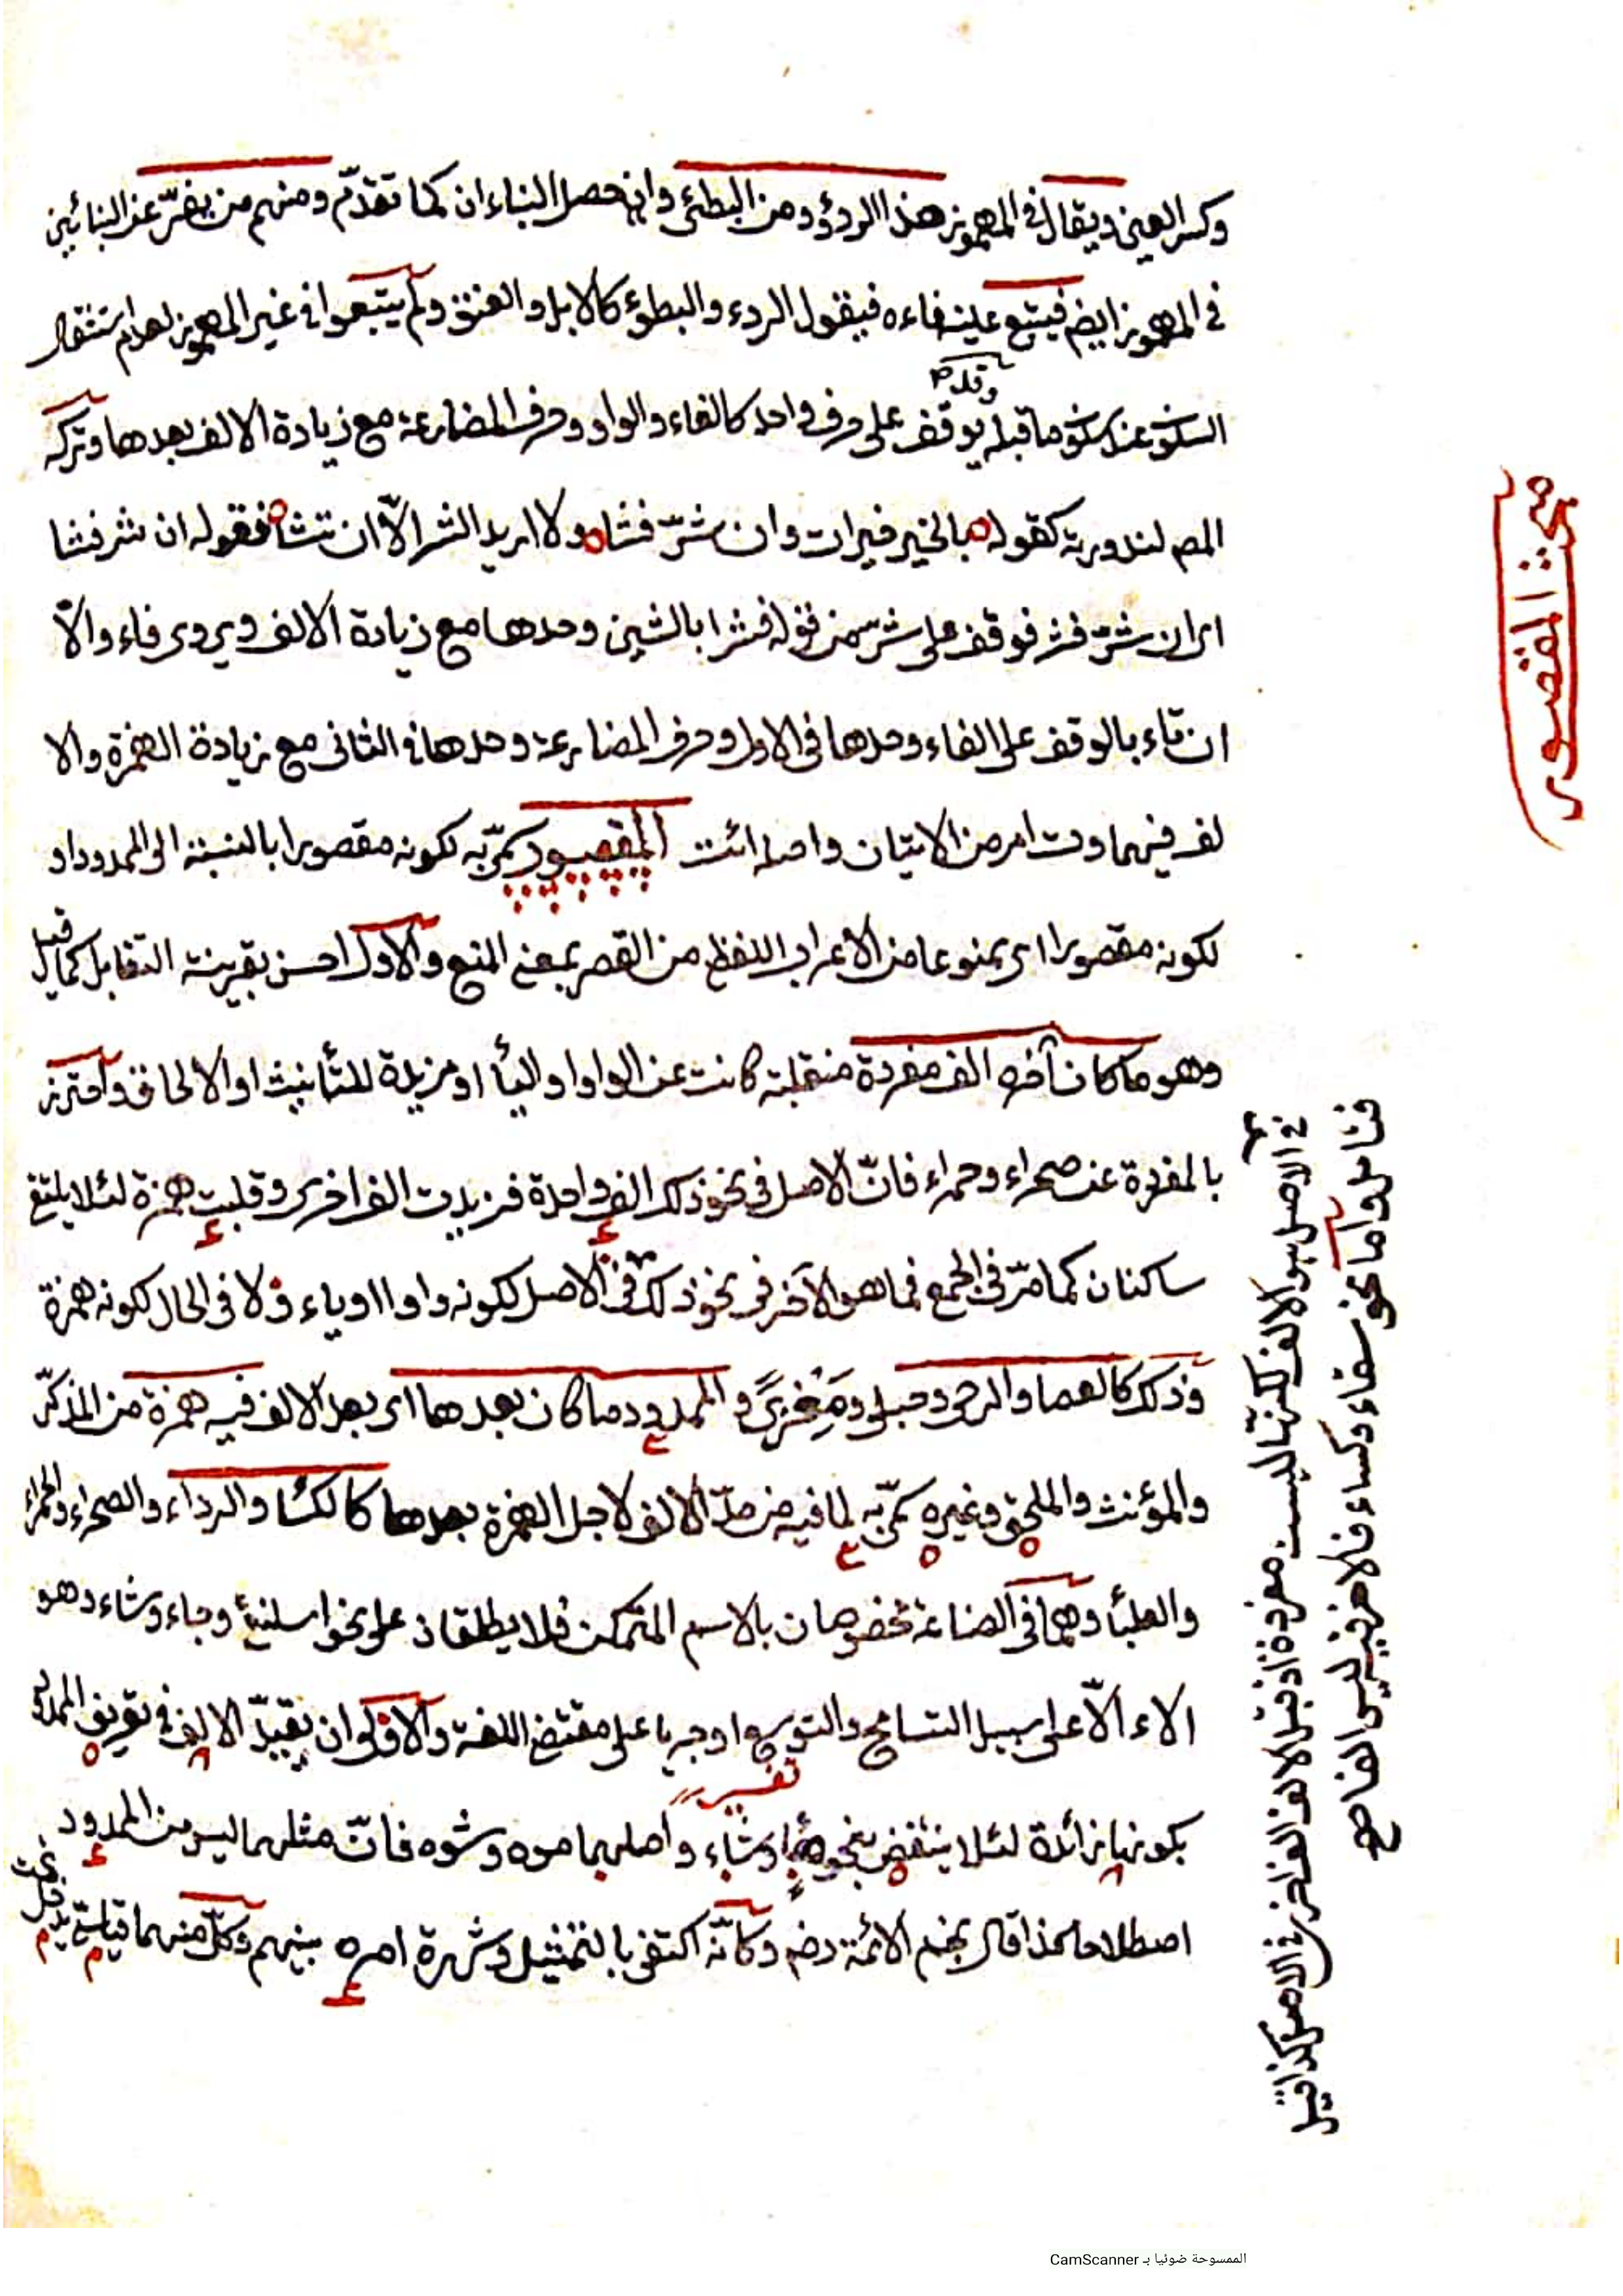 وكسر العين ويقال في المهموز هذا الردؤ ومن البطئ وان حصل البناءان كما تقدّم ومنهم من يفرّ عن البنائين
في المهموز ايضا فيتبع عينه فاءه فيقول الردء والبطؤ كالابل والعنق ولم يتبعوا في غير المهموز لعدم استثقال
وقد
السكون عند سكون ما قبله يوقف على حرف واحد كالفاء والواو وحرف المضارعة مع زيادة الالف بعدها وتركه
المص لندورته كقوله بالخير خيرات وان شرّ فشا ولا اريد الشر الّا ان تشا فقوله ان شر فشا
اى ان شرّ فشر فوقف على شر من قوله فشرا بالشين وحدها مع زيادة الالف ويروى فاء والّا
ان تاء بالوقف على الفاء وحدها فى الاول وحرف المضارعة وحدها فى الثانى مع زيادة الهمزة والا
لف فيهما وت امر من الاتيان واصله ائت المقصور سمّى به لكونه مقصورا بالنسبة الى الممدود او
لكونه مقصورا اى ممنوعا من الاعراب اللفظى من القصر بمعنى المنع والاول احسن بقرينة التقابل كما قيل
وهو ما كان آخره الف مفردة منقلبة كانت عن الواو او اليأ او مزيدة للتأنيث او الالحاق واحترز
بالمفردة عن صحراء وحمراء فانّ الاصل فى نحو ذلك الف واحدة فزيدت الف اخرى وقلبت همزة لئلا يلتقى
ساكنان كما مرّ فى الجمع فما هو الآخر فى نحو ذلك فى الاصل لكونه واوا او ياء ولا فى الحال لكونه همزة
وذلك كالعصا والرحى وحبلى ومغزى والممدود ما كان بعدها اى بعد الالف فيه همزة من المذكّر
والمؤنث والملحق وغيره سمّى به لما فيه من مدّ الالف لاجل الهمزة بعدها كالكسا والرداء والصحراء والحمراء
والعلبأ وهما فى الصناعة مخصوصان بالاسم المتمكن فلا يطلقان على نحو اسلنقى وجاء وشاء وهو
الاء الّا على سبيل التسامح والتوسع او جريا على مقتضى اللغة والاولى ان يقيّد الالف فى تعريف الممدود
تفسير
بكونها زائدة لئلا ينتقض بنحو ماء وشاء واصلهما موه وشوه فانّ مثلهما ليس من الممدود
اصطلاحا هكذا قال نجم الائمة رضى وكانّه اكتفى بالتمثيل وشهرة امره بينهم وكلّ منهما قياسىّ
مبحث المقصور
فى الاصل هو الالف لكنها ليست مفردة اذ قبل الالف الف اخرى فى الاصل كذا قيل
فتامل واما نحو سقاء وكساء فالاخر فيه ليس الفا صح
الممسوحة ضوئيا بـ CamScanner